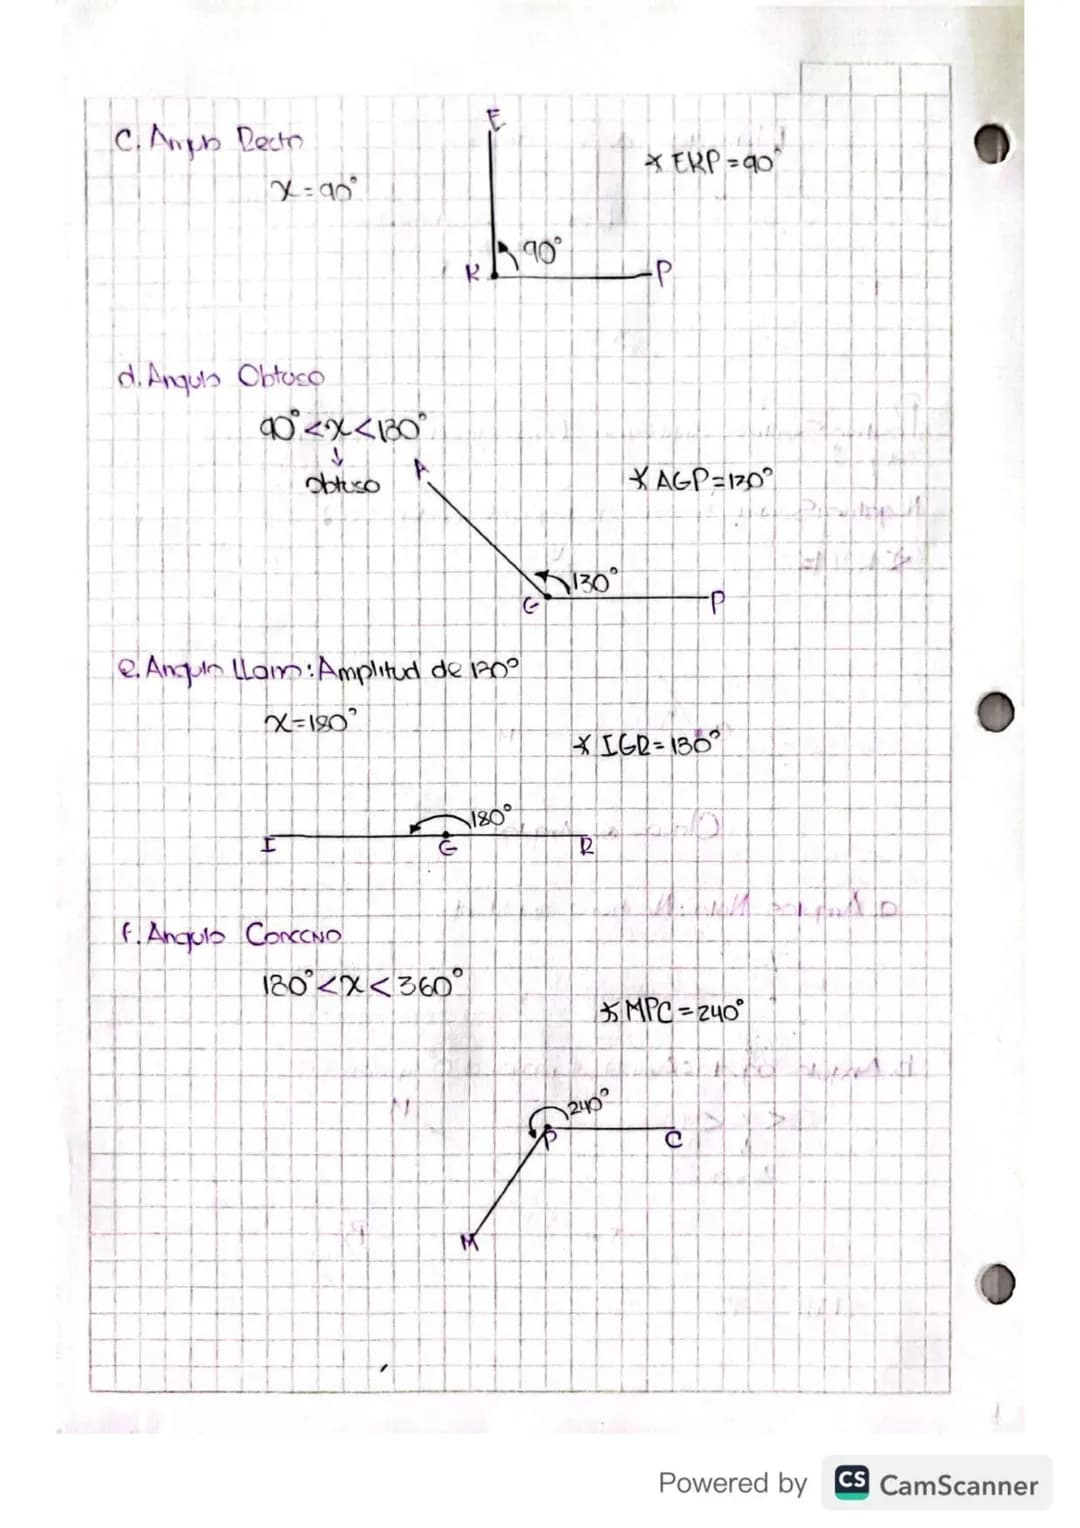 C. Angulo Recto
E
∢ EKP = 90°
x = 90°
90°
K
P
d. Angulo Obtuso
90° < x < 180°
↓
obtuso
A
∢ AGP = 130°
130°
G
P
e. Angulo Llano: Amplitud de 180°
x = 180°
∢ IGR = 180°
180°
I
G
R
f. Angulo Concavo
180° < x < 360°
∢ MPC = 240°
240°
P
C
M
Powered by CS CamScanner